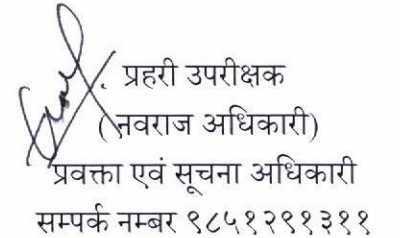 प्रहरी उपरीक्षक
(नवराज अधिकारी)
प्रवक्ता एवं सूचना अधिकारी
सम्पर्क नम्बर ९८५१२९१३११